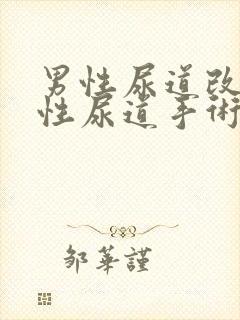 男性尿道改
性尿道手術
邹華謹